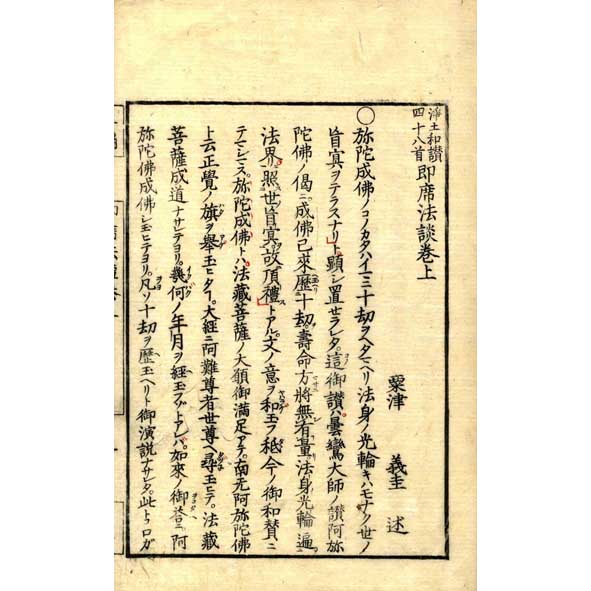 浄土和讃
四十八首 即席法談巻上
粟津 義圭 述
○弥陀成佛ノコノカタハイマニ十劫ヲヘタマヘリ法身ノ光輪キハモナク世ノ
盲冥ヲテラスナリト顕シ置セラレタ這御讃ハ曇鸞大師ノ讃阿弥
陀佛ノ偈ニ成佛已來歴十劫壽命方將無有量法身光輪遍
法界照世盲冥故頂禮トアル文ノ意ヲ和玉フ秪今ノ御和賛ニ
テマシマス弥陀成佛トハ法藏菩薩ノ大願御満足アテ南无阿弥陀佛
上云正覺ノ旗ヲ舉玉ヒタ大経ニ阿難尊者世尊ヘ尋玉ヒテ法藏
菩薩成道ナサレテヨリ幾何ノ年月ヲ経玉フゾトアレバ如來ノ御荅ニ阿
弥陀佛成佛シ玉ヒテヨリ凡ソ十劫ヲ歴玉ヘリト御演説ナサレタ此トロガ